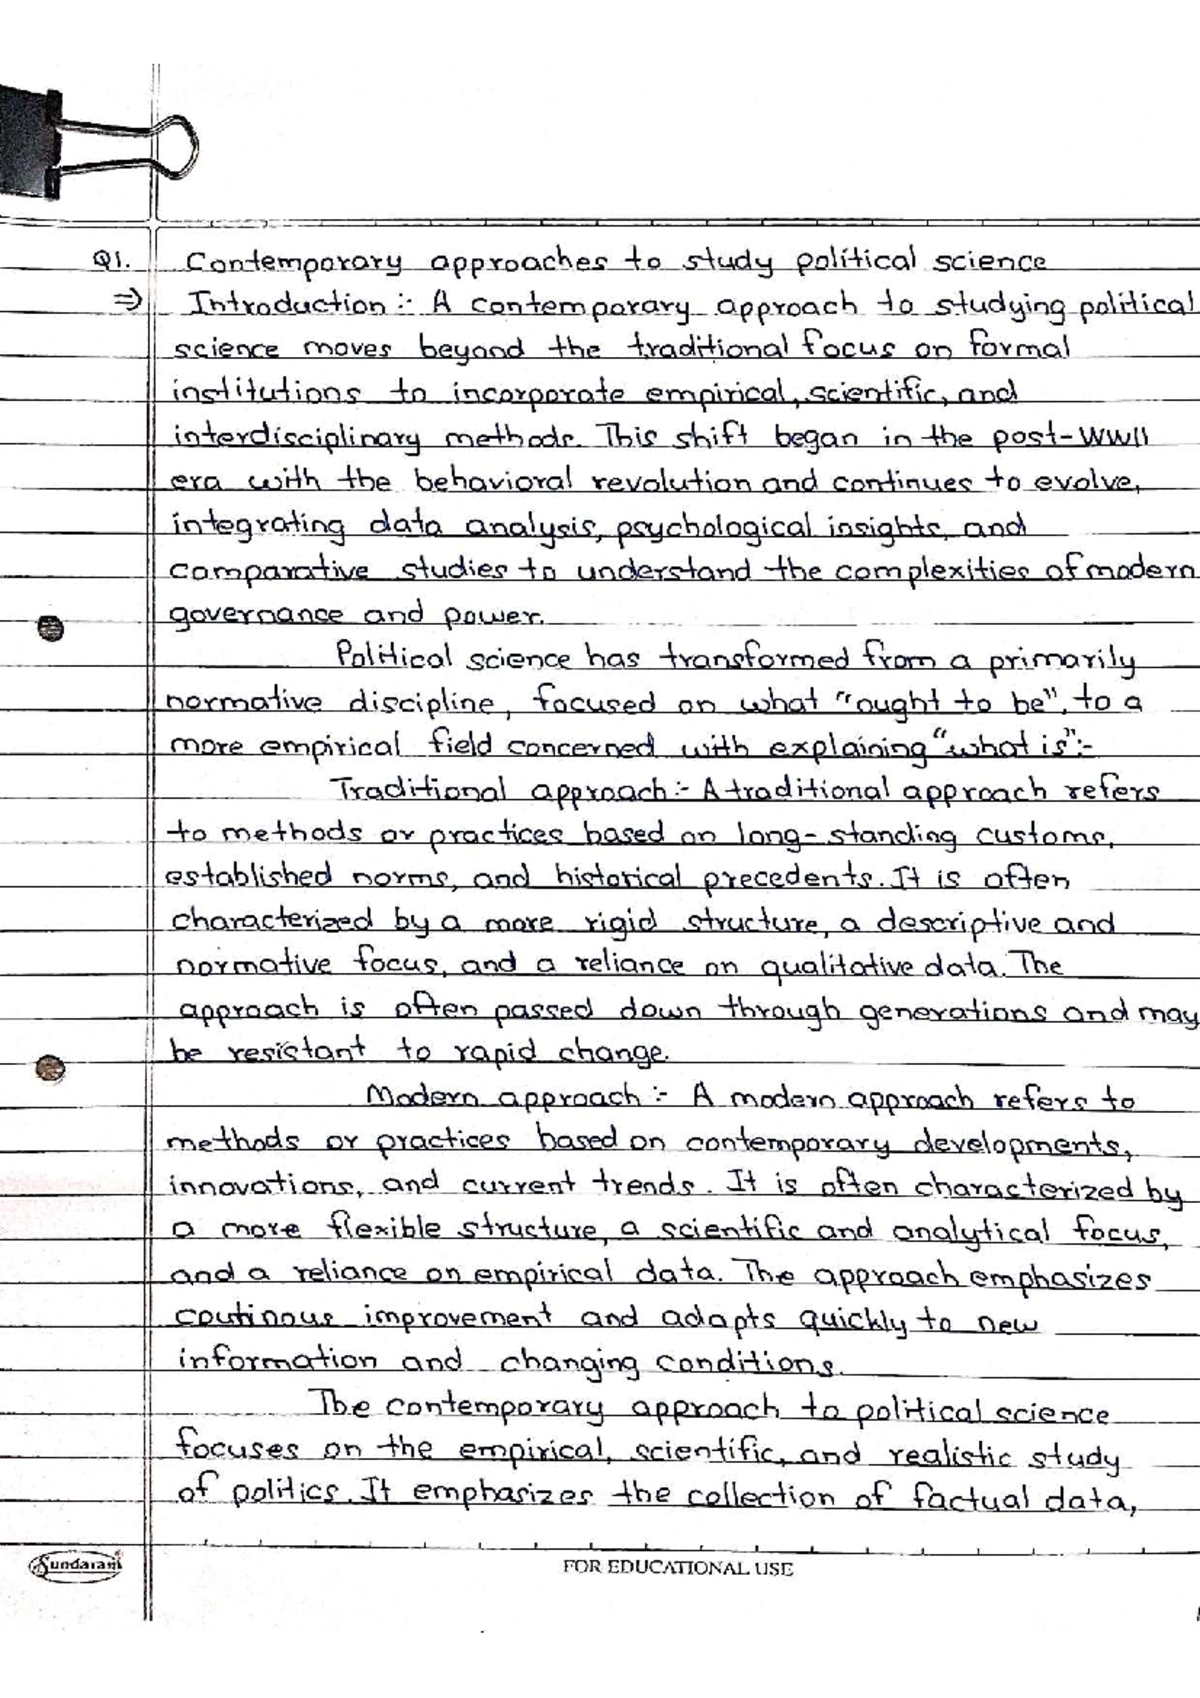 Q1. Contemporary approaches to study political science
⇒ Introduction :- A contemporary approach to studying political
science moves beyond the traditional focus on formal
institutions to incorporate empirical, scientific, and
interdisciplinary methods. This shift began in the post-WWII
era with the behavioral revolution and continues to evolve,
integrating data analysis, psychological insights, and
comparative studies to understand the complexities of modern
governance and power.
Political science has transformed from a primarily
normative discipline, focused on what "ought to be", to a
more empirical field concerned with explaining "what is":-
Traditional approach :- A traditional approach refers
to methods or practices based on long-standing customs,
established norms, and historical precedents. It is often
characterized by a more rigid structure, a descriptive and
normative focus, and a reliance on qualitative data. The
approach is often passed down through generations and may
be resistant to rapid change.
Modern approach :- A modern approach refers to
methods or practices based on contemporary developments,
innovations, and current trends. It is often characterized by
a more flexible structure, a scientific and analytical focus,
and a reliance on empirical data. The approach emphasizes
coutinous improvement and adapts quickly to new
information and changing conditions.
The contemporary approach to political science
focuses on the empirical, scientific, and realistic study
of politics. It emphasizes the collection of factual data,
Sundaram
FOR EDUCATIONAL USE